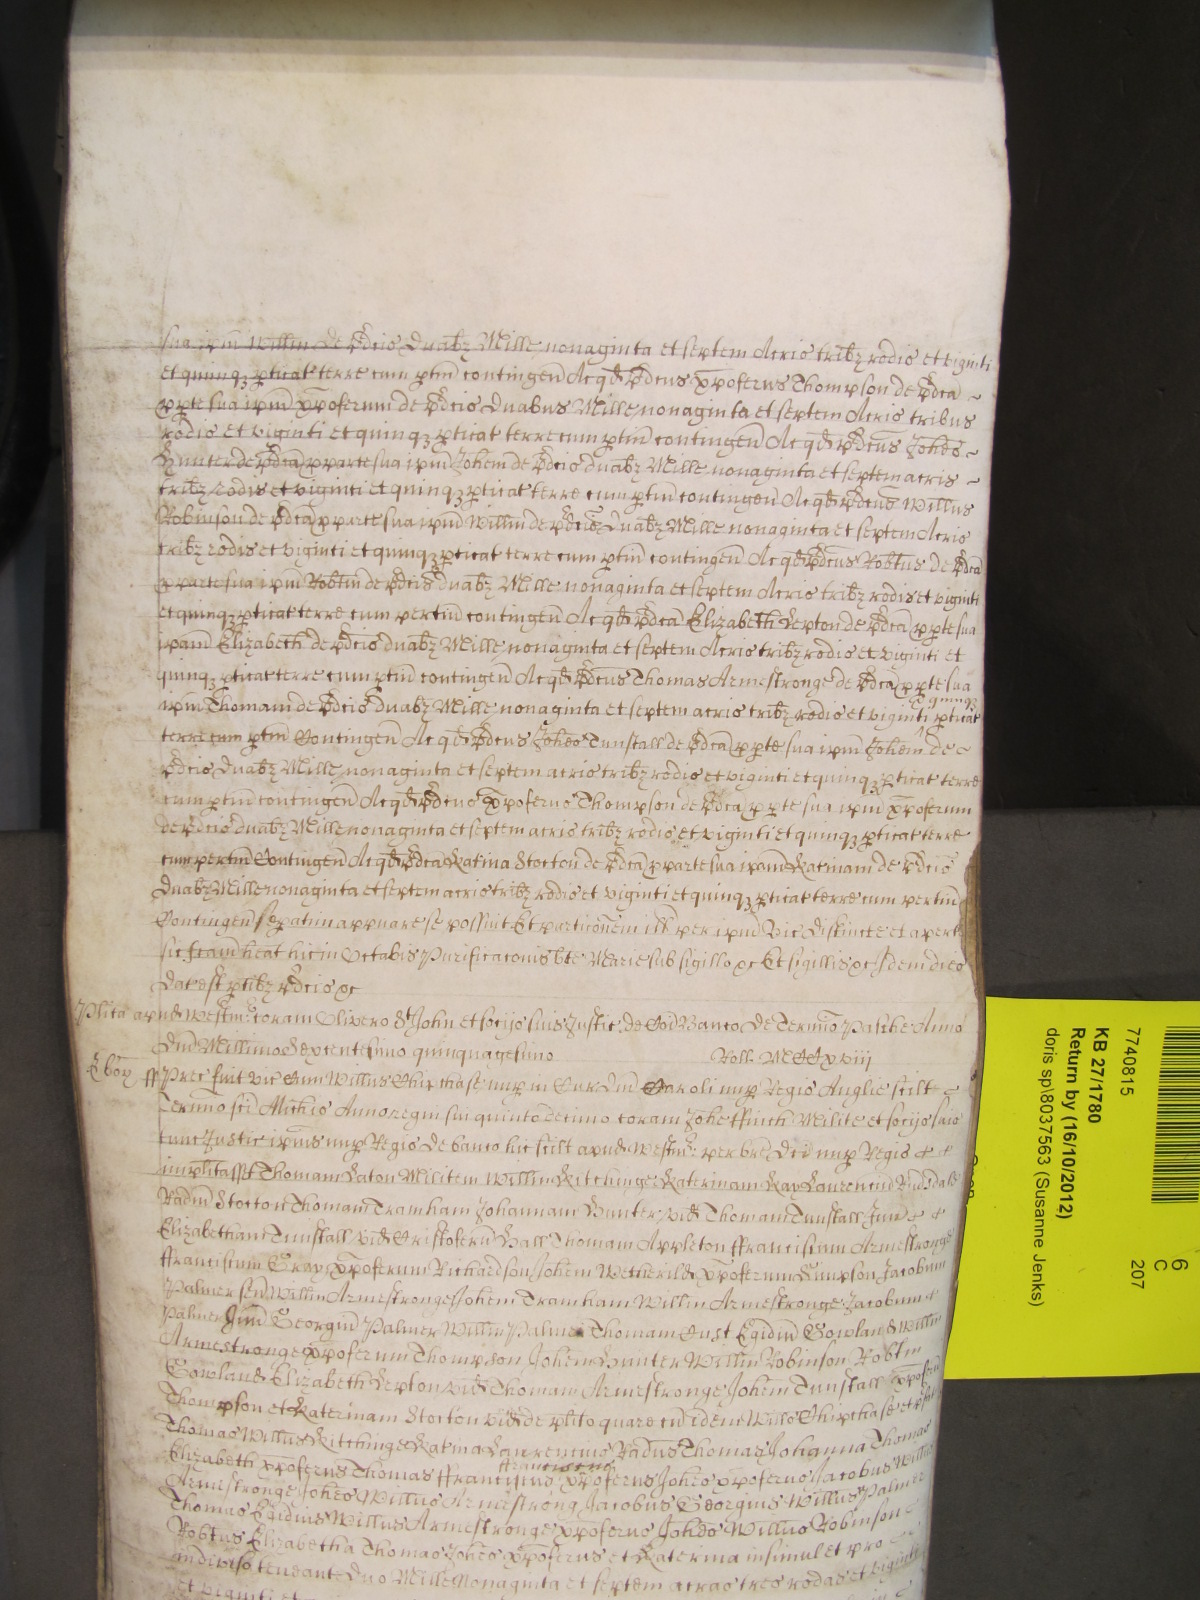 sua ip̄m Willm̄ de p̄dcis duabz Mille nonaginta et septem Acris tribz rodis et viginti
et quinqz p̱ticat terre cum p̱tin̄ contingen̄ Ac qd̄ p̄dcus xp̄oferus Thompson de p̄dca
p̱pte sua ip̄m xp̄oferum de p̄dcis duabus Mille nonaginta et septem Acris tribus
rodis et viginti et quinqz p̱ticat terre cum p̱tin̄ contingen̄ Ac qd̄ p̄dcus Johēs
Hunter de p̄dca p̱parte sua ip̄m Johem de p̄dcis duabz Mille nonaginta et septem acris
tribz rodis et viginti et quinqz p̱ticat terre cum p̱tin̄ contingen̄ Ac qd̄ p̄dcus Willus
Robinson de p̄dca p̱parte sua ip̄m Willm̄ de p̄dcis duabz Mille nonaginta et septem Acris
tribz rodis et viginti et quinqz p̱ticat terre cum p̱tin̄ contingen̄ Ac qd̄ p̄dcus Robtus de p̄dca
p̱parte sua ip̄m Robtm̄ de p̄dcis duabz Mille nonaginta et septem Acris tribz rodis et viginti
et quinqz p̱ticat terre cum pertin̄ contingen̄ Ac qd̄ p̄dca Elizabeth Lepton de p̄dca p̱pte sua
ipam̄ Elizabeth de p̄dcis duabz Mille nonaginta et septem Acris tribz rodis et viginti et
quinqz p̱ticat terre cum p̱tin̄ contingen̄ Ac qd̄ p̄dcus Thomas Armestronge de p̄dca p̱pte sua
ip̄m Thomam de p̄dcis duabz Mille nonaginta et septem acris tribz rodis et viginti et quinqz p̱ticat
terre cum p̱tin̄ Contingen̄ Ac qd̄ p̄dcus Johēs Tunstall de p̄dca p̱pte sua ip̄m Johem de
p̄dcis duabz Mille nonaginta et septem acris tribz rodis et viginti et quinqz p̱ticat terre
cum p̱tin̄ contingen̄ Ac qd̄ p̄dcus xp̄oferus Thompson de p̄dca p̱pte sua ip̄m xp̄oferum
de p̄dcis duabz Mille nonaginta et septem acris tribz rodis et viginti et quinqz p̱ticat terre
cum pertin̄ Contingen̄ Ac qd̄ p̄dca Katina Stocton de p̄dca p̱parte sua ipam̄ Katinam de p̄dcis
duabz Mille nonaginta et septem acris tribz rodis et viginti et quinqz p̱ticat terre cum pertin̄
Contingen̄ sep̱atim appruare se possint Et particonem ill̄ per ip̄m Vic distincte et apert
sic fcam̄ heat hic in Octabis Purificaconis bte Marie sub sigillo &c Et sigillis &c Idem dies
dat est p̱tibz p̄dcis &c
Plita apud Westm̄ coram Olivero St John et socijs suis Justic de Coi Banco de Termino Pasche Anno
Dni Millimo Sexcentesimo quinquagesimo Roll MCCxviii
Ebor ss Prec fuit vic Cum Willus Chipchase nup̱ in Cur Dni Caroli nup̱ Regis Anglie scilt
Termino sci Michis Anno regni sui quinto decimo coram Johe Ffinch Milite et socijs suis
tunc Justic ip̄ius nup̱ Regis de banco hic scilt apud Westm̄ per bre Dci nup̱ Regis
implitasset Thomam Laton Militem Willm̄ Kitchinge Katerinam Kay Laurencium
Radm̄ Stocton Thomam Tramham Johannam Hunter vid Thomam Tunstall Jun
Elizabetham Tunstall vid Cristoferu Hall Thomam Appleton Ffranciscam Armestronge
Ffranciscum Gray xp̄oferum Richardson Johem Wetherild xp̄oferum Simpson Jacobum
Palmer sen̄ Willm̄ Armestronge Johem Tramham Willm̄ Armestronge Jacobum
Palmer Jun̄ Georgiū Palmer Willm̄ Palmer Thomam Cust Egidiū Gowland Willm̄
Armestronge xp̄oferum Thompson Johem Hunter Willm̄ Robinson Robtm̄
Gowland Elizabeth Lepton vid Thomam Armestronge Johem Tunstall xp̄oferū
Thompson et Katerinam Stocton vid de plito quare cū idem Willus Chipchase et
Thomas Willus Kitchinge Katina Laurencius Radus Thomas Johanna Thomas
Elizabeth xp̄oferus Thomas Ffranciscus Ffranciscus xp̄oferus Johēs xp̄oferus Jacobus Willus
Armestronge Johēs Willus Armestrong Jacobus Georgius Willus Palmer
Thomas Egidius Willus Armestronge xp̄oferus Johēs Willus Robinson
Robtus Elizabetha Thomas Johēs xp̄oferus et Katerina insimul et pro
indiviso teneant duo Mille Nonaginta et septem acras tres rodas et viginti
et viginti et
7740815
KB 27/1780
Return by (16/10/2012)
doris sp\8037563 (Susanne Jenks)
6
C
207